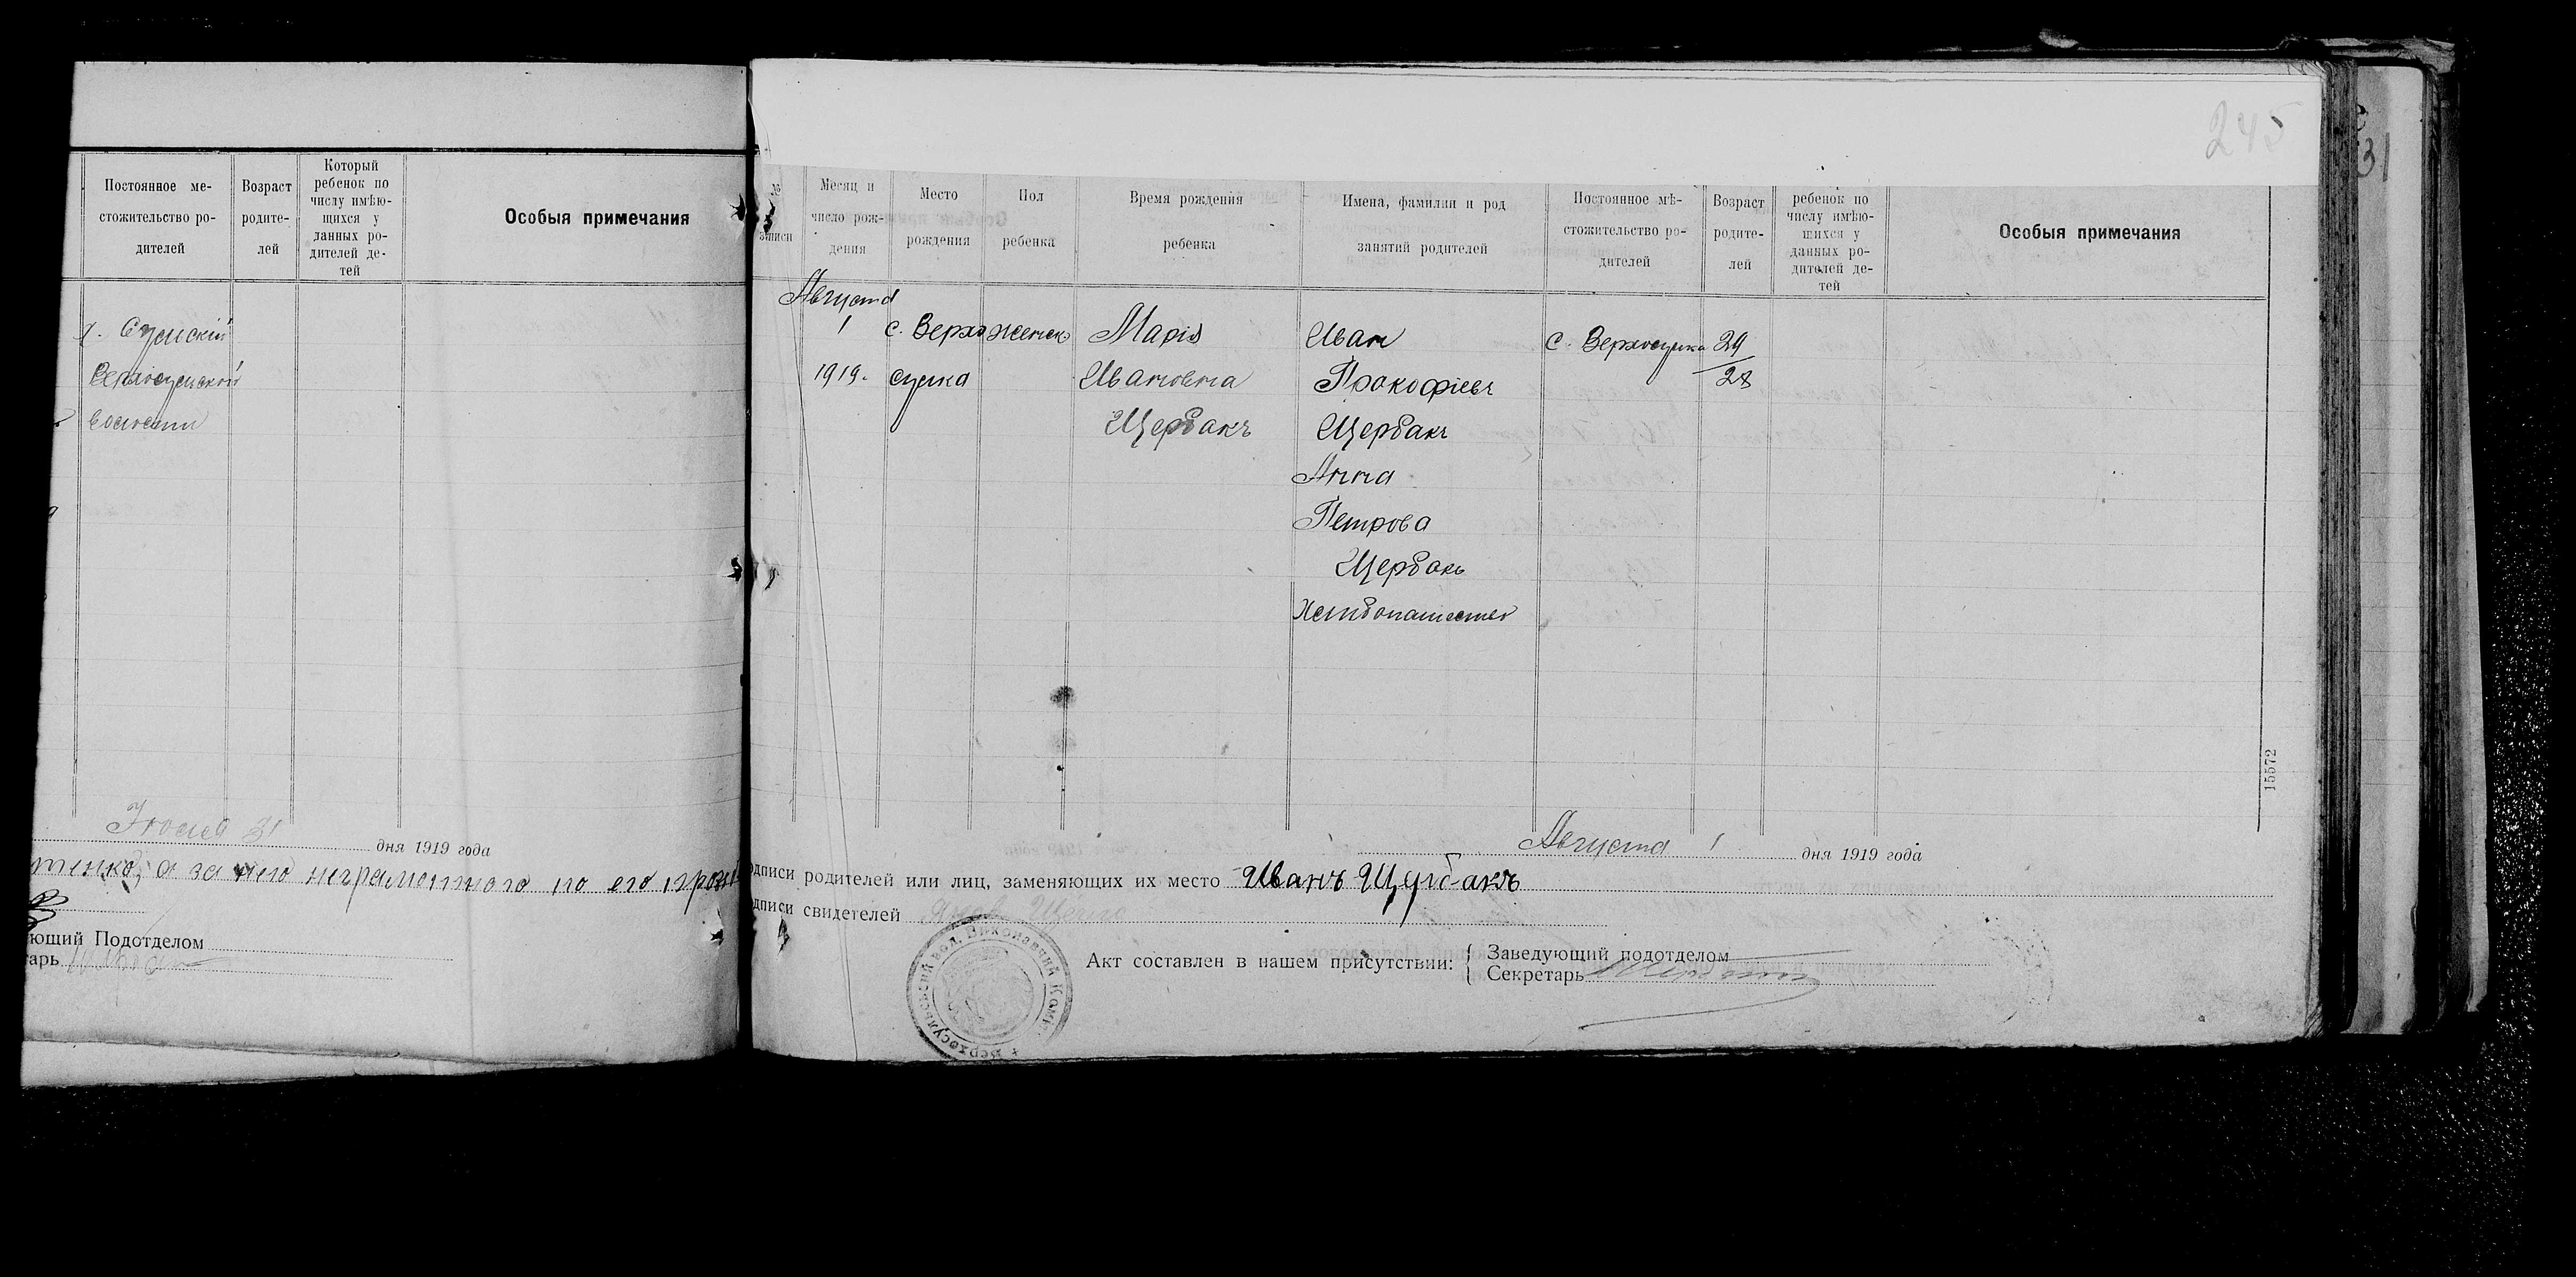 Постоянное ме-
стожительство ро-
дителей
Возраст
родите-
лей
Который
ребенок по
числу имѣю-
щихся у
данных ро-
дителей де-
тей
Особыя примечания
Сумскій
Верхосульской
волости
Июля 31
дня 1919 года
тенко, а за него неграмотного по его
ющий Подотделом
тарь
245
31
№
записи
Месяц и
число рож-
дения
Место
рождения
Пол
ребенка
Время рождения
ребенка
Имена, фамилии и род
занятий родителей
Постоянное мѣ-
стожительство ро-
дителей
Возраст
родите-
лей
ребенок по
числу имѣю-
щихся у
данных ро-
дителей де-
тей
Особыя примечания
Августа
1
1919.
с. Верхо
сулка
женск.
Марія
Ивановна
Щербакъ
Иван
Прокофіевъ
Щербакъ
Анна
Петрова
Щербакъ
Хлѣбопашество
с. Верхосулка
29
28
15572
Августа 1
дня 1919 года
одписи родителей или лиц, заменяющих их место Иванъ Щербакъ
одписи свидетелей
Акт составлен в нашем присутствии:
Заведующий подотделом
Секретарь
Верхосульський вол. Виконавчий Ком